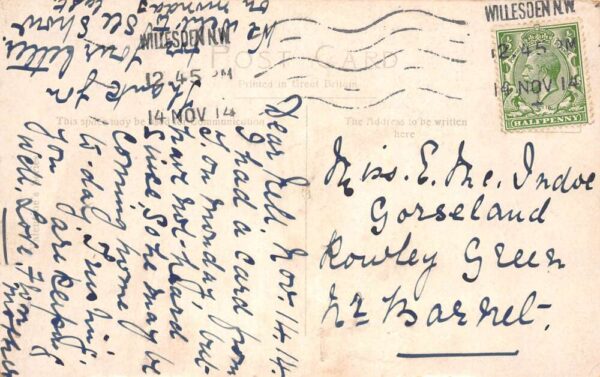 WILLESDEN N.W.
12.45 PM
14 NOV 14
WILLESDEN N.W.
12.45 PM
14 NOV 14
HALFPENNY
POST CARD
Printed in Great Britain
This space may be communication
The Address to be written
here
Dear Nell. Nov. 14.14.
I had a card from
T. on Monday, but
have not heard
since, so he may be
coming home
to-day. Trusting
you are keeping
well. Love from
mother
Thanks for
your letter.
We went to
see show
on monday
Miss. E. Mc. Indoe
Gorseland
Rowley Green
Nr Barnet.